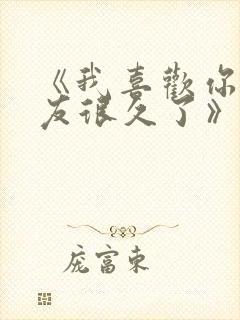 《我喜歡你
友很久了》
庞富東